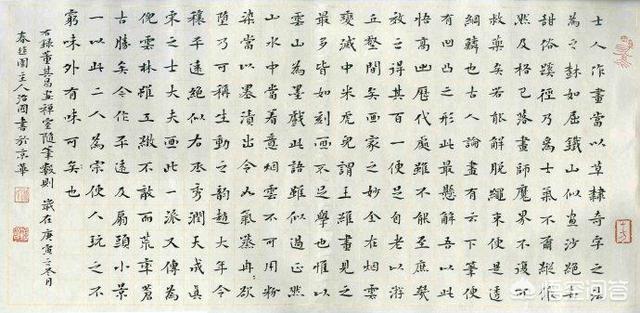 士人作畫當以草隸奇字之法
為之樹如屈鐵山似畫沙絕去
甜俗蹊徑乃為士氣不爾縱儼
然及格已落畫師魔界不復可
救藥矣若能解脫繩束便是透
網鱗也古人論畫有云下筆便
有凹凸之形此最懸解吾以此
悟高出歷代處雖不能至庶幾
效之得其百一便足自老以游
丘壑間矣画家之妙全在烟雲
變滅中米虎兒謂王維畫見之
最多皆如刻畫不足學也惟以
雲山為墨戲此語雖似過正然
山水中當着意烟雲不可用粉
染當以墨漬出令如氣蒸冉冉欲
墮乃可稱生動之韻趙大年令
穰平遠絕似右丞秀潤天成真
宋之士大夫画此一派又傳為
倪雲林雖工緻不敵而荒率蒼
古勝矣今作平遠及扇頭小景
一以此二人為宗使人玩之不
窮味外有味可矣也
右錄董其昌畫禪室隨筆數則 歲在庚寅之冬月
園主人治國書於京華
悟空问答